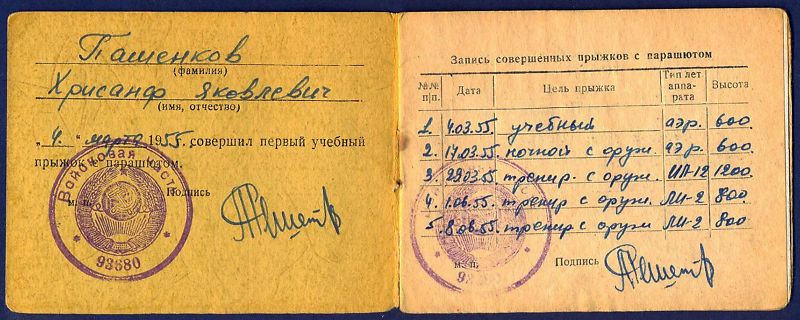 Пашенков
(фамилия)
Хрисанф Яковлевич
(имя, отчество)
„4." марта 1955. совершил первый учебный
прыжок с парашютом.
Подпись
м. п.
Войсковая часть
93680
Запись совершенных прыжков с парашютом
№№ п/п. Дата Цель прыжка Тип лет. аппарата Высота
1. 4.03.55. учебный аэр. 600.
2. 17.03.55. ночной с оруж. аэр. 600.
3 29.03.55 тренир. с оруж. ИЛ-12 1200.
4. 1.06.55. тренир с оруж. ЛИ-2 800.
5. 8.06.55. тренир с оруж ЛИ-2 800.
м. п. Подпись